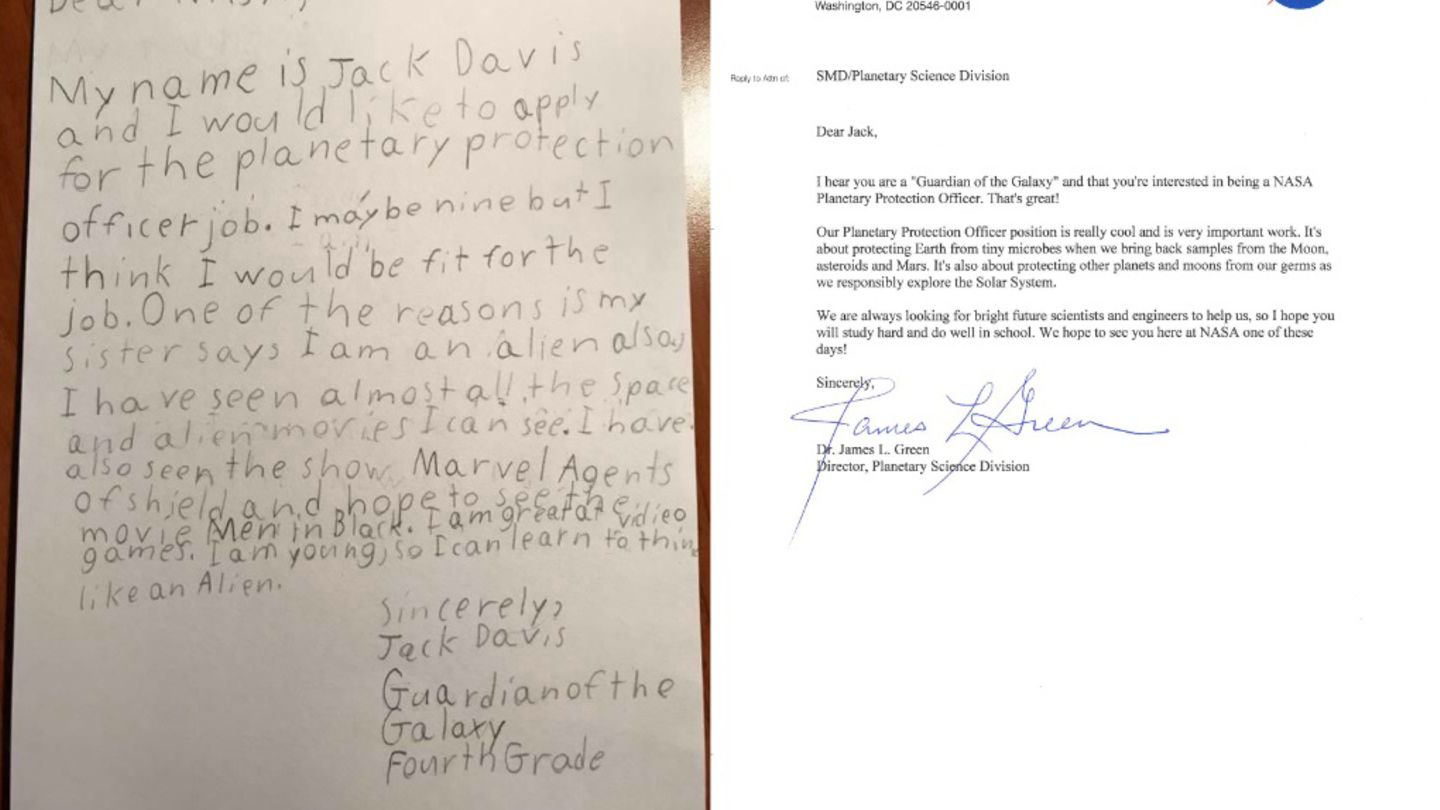 Dear NASA,
My name is Jack Davis
and I would like to apply
for the planetary protection
officer job. I may be nine but I
think I would be fit for the
job. One of the reasons is my
sister says I am an alien also,
I have seen almost all the space
and alien movies I can see. I have
also seen the show Marvel Agents
of shield and hope to see the
movie Men in Black. I am great at vidieo
games. I am young, so I can learn to think
like an Alien.
Sincerely,
Jack Davis
Guardian of the
Galaxy
Fourth Grade
Washington, DC 20546-0001
Reply to Attn of: SMD/Planetary Science Division
Dear Jack,
I hear you are a "Guardian of the Galaxy" and that you're interested in being a NASA
Planetary Protection Officer. That's great!
Our Planetary Protection Officer position is really cool and is very important work. It's
about protecting Earth from tiny microbes when we bring back samples from the Moon,
asteroids and Mars. It's also about protecting other planets and moons from our germs as
we responsibly explore the Solar System.
We are always looking for bright future scientists and engineers to help us, so I hope you
will study hard and do well in school. We hope to see you here at NASA one of these
days!
Sincerely,
James L Green
Dr. James L. Green
Director, Planetary Science Division